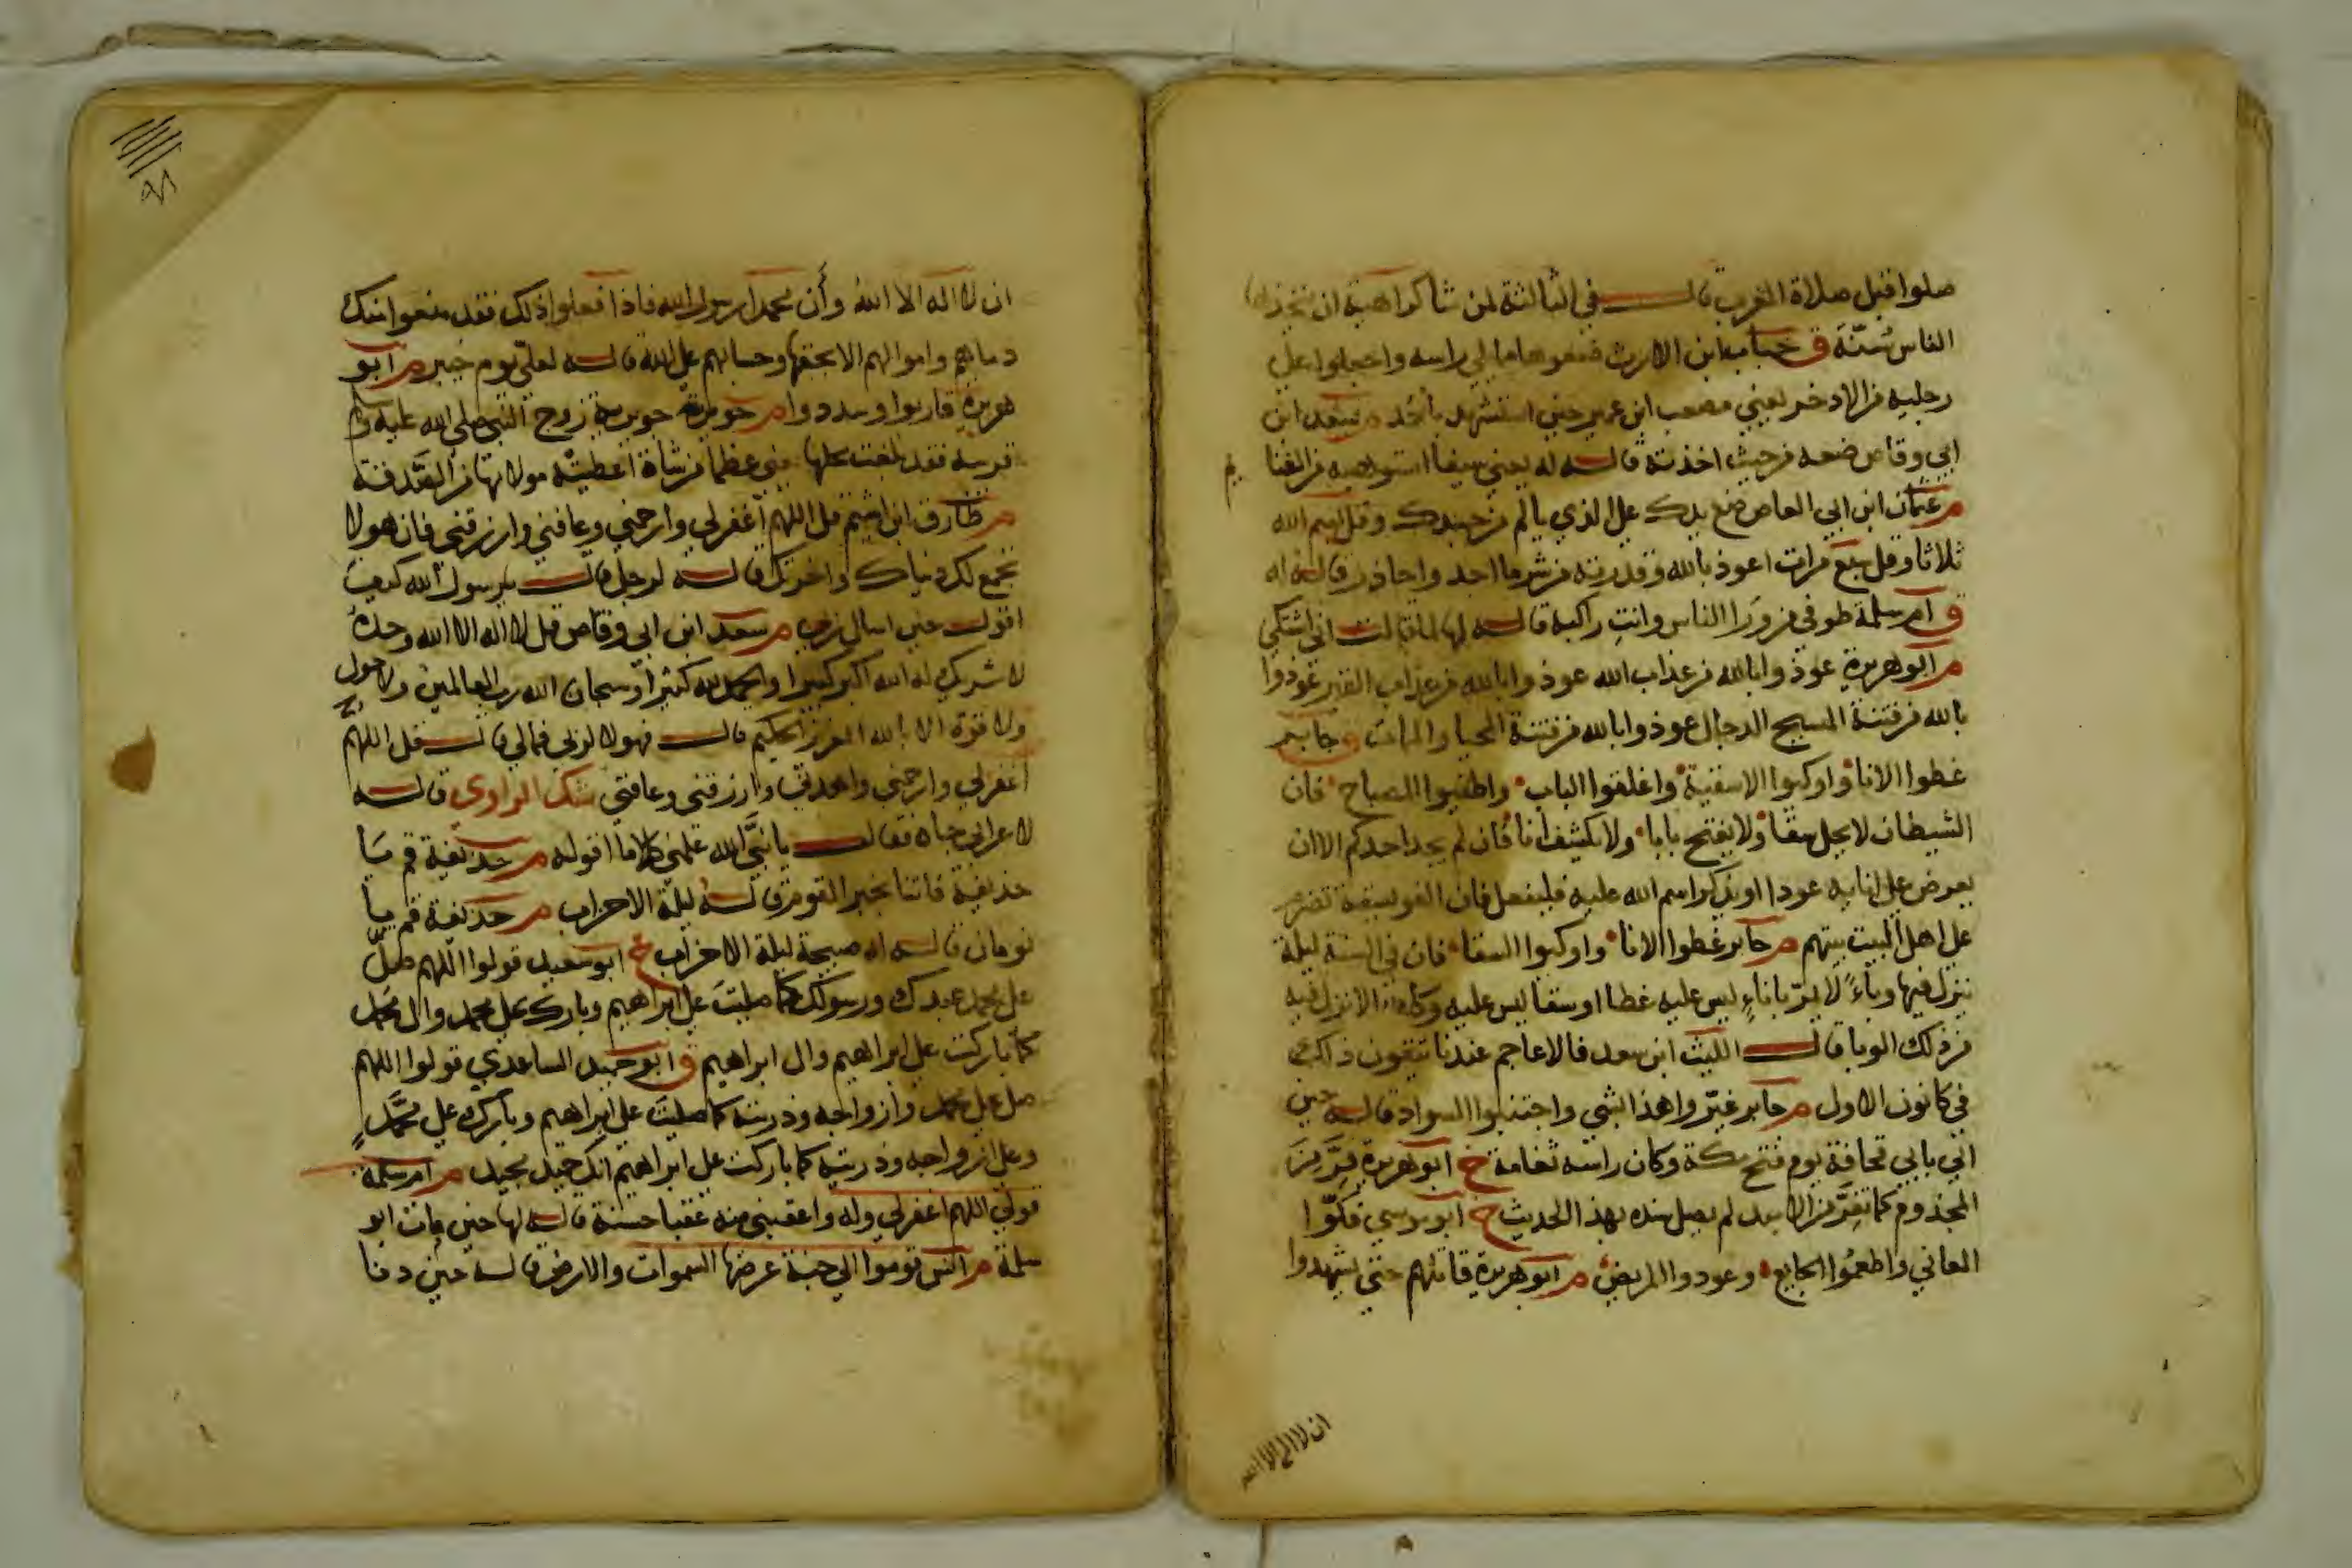 صلوا قبل صلاة المغرب قالــــ في الثالثة لمن شا كراهية ان يتخذها
الناس سُنّةَ ق خباب ابن الارت ضعوها مما يلي راسه واجعلوا على
رجليه من الادخر يعني مصعب ابن عمير حين استشهد بأحُد م سعد ابن
ابي وقاص ضعه من حيث اخذته قالــه له يعني سيفا استوهبه من الغنا
يم
م عثمان ابن ابي العاص ضع يدك على الذي يالم من جسدك وقل بسم الله
ثلاثا وقل سبع مرات اعوذ بالله وقدرته من شر ما اجد واحاذر قالــه له
ق ام سلمة طوفي من وَرَا الناس وانتِ راكبة قالــه لها لما قالت اني اشتكي
م ابو هريرة عوذوا بالله من عذاب الله عوذوا بالله من عذاب القبر عوذوا
بالله من فتنة المسيح الدجال عوذوا بالله من فتنة المحيا والممات م جابر
غطوا الانا واوكيوا الاسقية واغلقوا الباب واطفيوا المصباح فان
الشيطان لا يحل سقا ولا يفتح بابا ولا يكشف انا فان لم يجد احدكم الا ان
يعرض على انايه عودا او يذكر اسم الله عليه فليفعل فان الفويسقة تضرم
على اهل البيت بيتهم م جابر غطوا الانا واوكيوا السقا فان في السنة ليلة
ينزل فيها وباءً لا يمرّ باناءٍ ليس عليه غطا او سقا ليس عليه وكاء الا نزل فيه
من ذلك الوبا قالــــ الليث ابن سعد فالاعاجم عندنا يتقون ذلك
في كانون الاول م جابر غيّروا هذا بشي واجتنبوا السواد قالــه حين
اتي بابي قحافة يوم فتح مكة وكان راسه ثغامة خ ابو هريرة فِرَّ مِنَ
المجذوم كما تفِرّ من الاسد لم يصل سنده بهذا الحديث خ ابو موسي فكّوا
العاني واطعمُوا الجايع وعودوا المريض م ابو هريرة قاتلهم حتى يشهدوا
ان لا اله الا الله
٩٨
ان لا اله الا الله وأن محمدا رسول الله فاذا فعلوا ذلك فقد منعوا منك
دماهم واموالهم الا بحقها وحسابهم على الله قالــه لعليّ يوم خيبر م ابو
هريرة قاربوا وسددوا م جويرية جويرية زوج النبي صلى الله عليه وسلم
قربيه فقد بلغت محلها يعني عظما من شاة اعطيته مولاتها من الصَّدقة
م طارق ابن اشيم قل اللهم اغفر لي وارحمني وعافني وارزقني فان هولا
تجمع لك دنياك واخرتك قالــه لرجل قالــ يا رسول الله كيف
اقولــ حين اسال ربي م سعد ابن ابي وقاص قل لا اله الا الله وحدهُ
لا شريك له الله اكبر كبيرا والحمد لله كثيرا وسبحان الله رب العالمين ولا حول
ولا قوة الا بالله العزيز الحكيم قالــ فهولا لربي فما لي قالــ قل اللهم
اغفر لي وارحمني واهدني وارزقني وعافني شك الراوي قالــه
لاعرابي جاه فقالــــ يا نبيَّ الله علمني كلاما اقوله م حذيفة قم يا
حذيفة فاتنا بخبر القوم قالــه ليلة الاحزاب م حذيفة قم يا
نومان قالــه له صبيحة ليلة الاحزاب خ ابو سعيد قولوا اللهم صلِّ
على محمد عبدك ورسولك كما صليتَ على ابراهيم وبارك على محمد وال محمد
كما باركت على ابراهيم وال ابراهيم ق ابو حميد الساعدي قولوا اللهم
صل على محمد وازواجه وذريته كما صليتَ على ابراهيم وبارك على محمَّدٍ
وعلى ازواجه وذريته كما باركت على ابراهيم انك حميد مجيد م ام سلمة
قولي اللهم اغفر لي وله واعقبني منه عقبا حسنة قالــه لها حين مات ابو
سلمة م انس قوموا الي جنة عرضها السموات والارض قالــه حين دنا